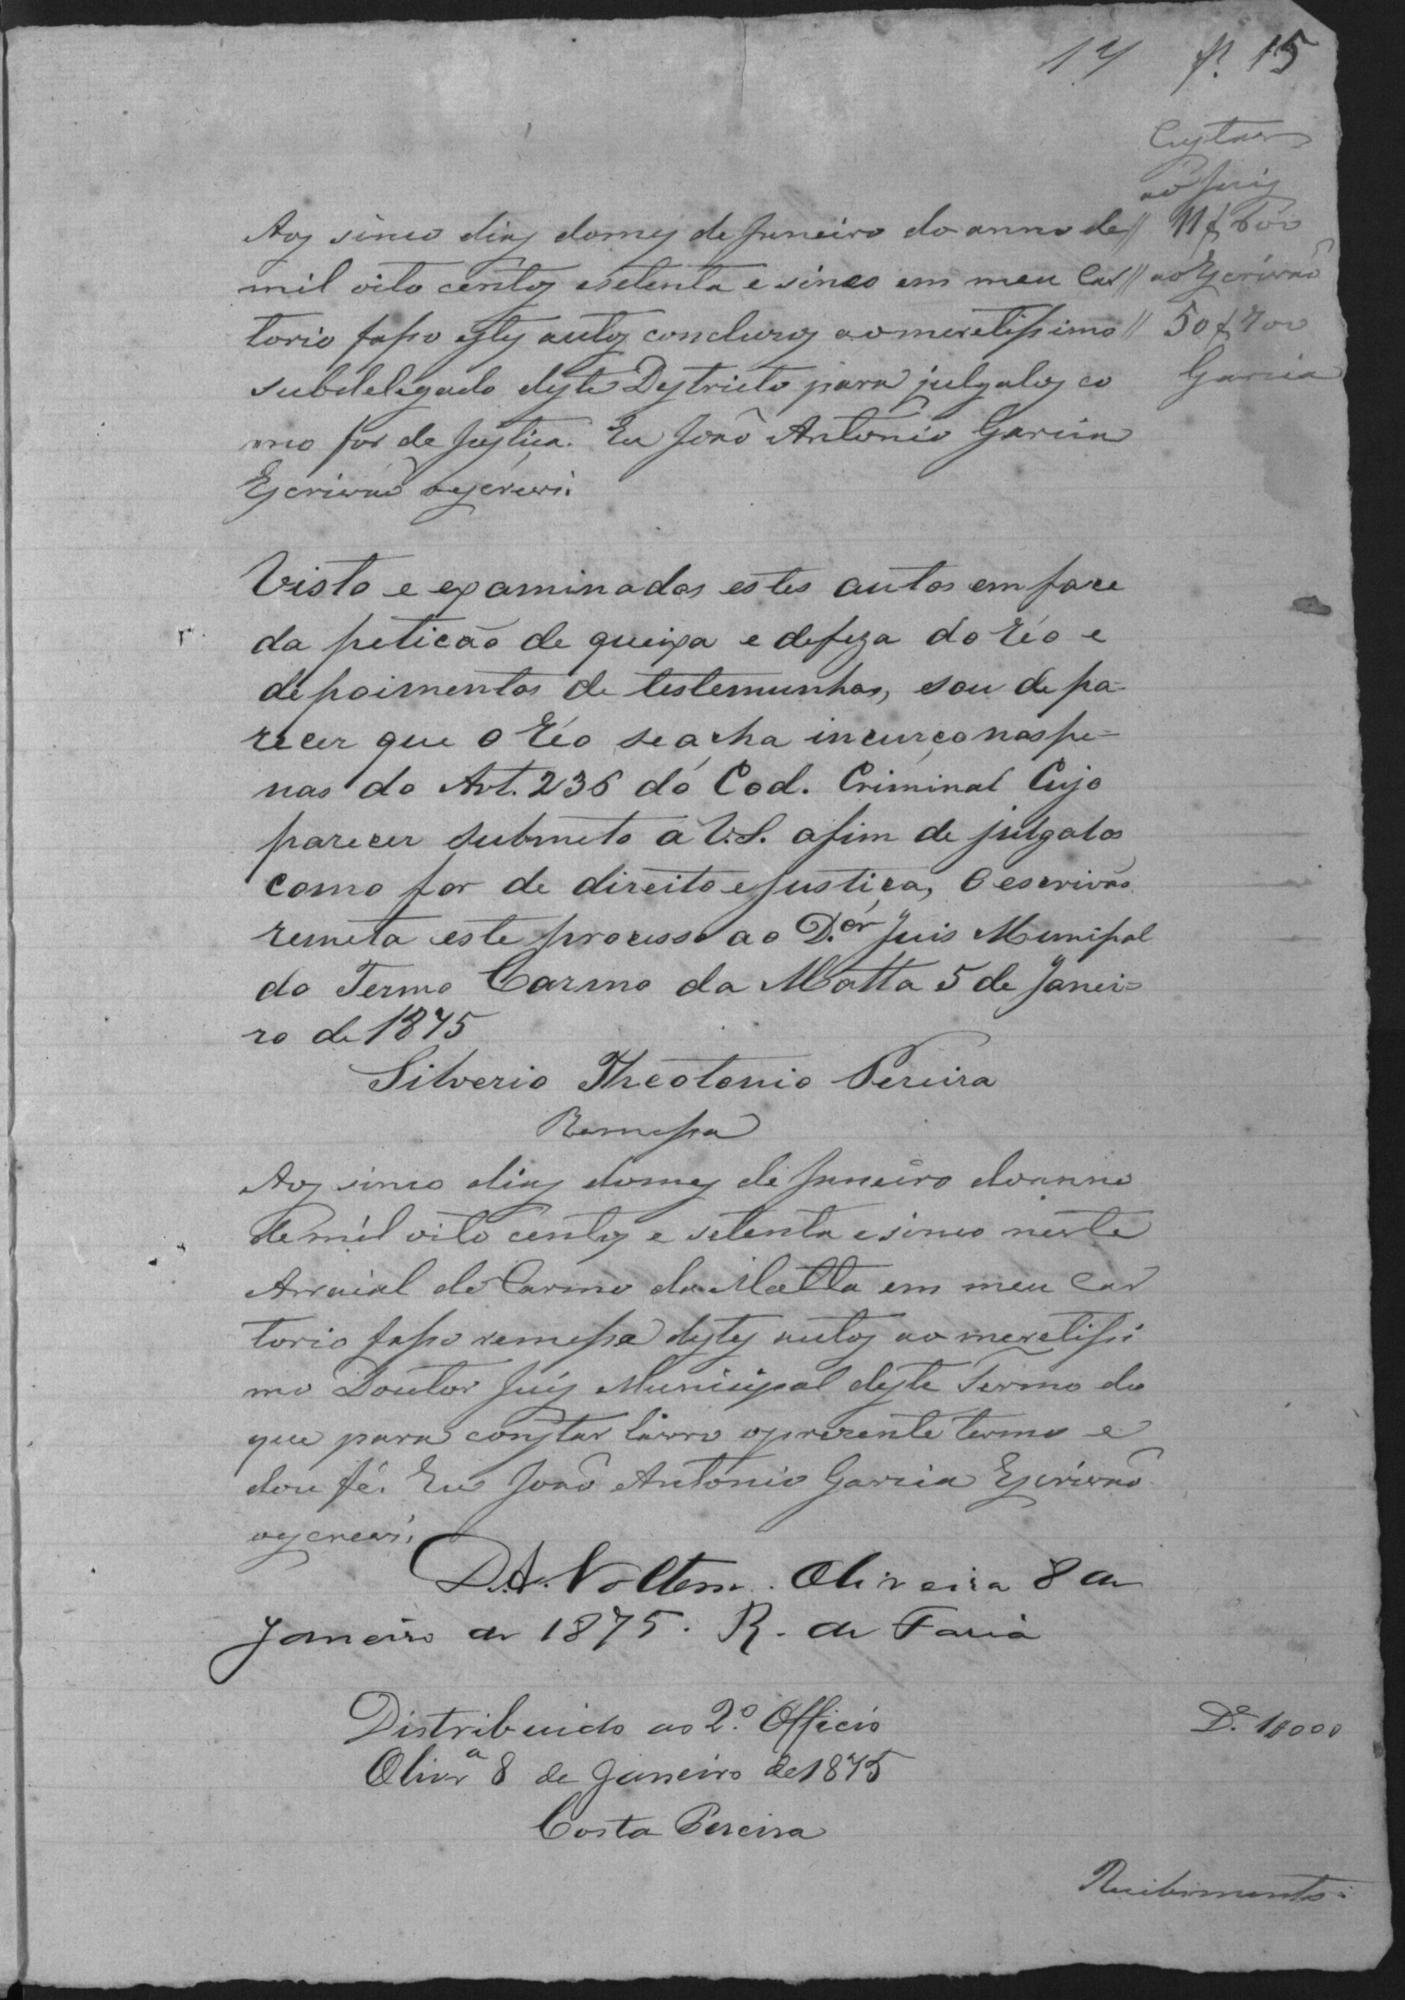 14 fl. 15
Custas
ao Juiz
11$600
ao Escrivão
50$700
Garcia
Aos sinco dias domes de Janeiro do anno de //
mil oito centos esetenta e sinco em meu Car //
torio fasso estes autos concluzos ao meretissimo //
subdelegado deste Destricto para julgalos co
mo for de Justiça. Eu João Antonio Garcia
Escrivão oescrevi.
Visto e examinados estes autos em face
da peticão de queixa e defeza do Réo e
depoimentos de testemunhas, sou de pa-
recer que o Réo se acha incurço nas pe-
nas do Art. 236 do Cod. Criminal Cujo
parecer submeto a V.S. afim de julgalos
como for de direito e Justiça, O escrivão
remeta este processo ao D.or Juis Munipal
do Termo Carmo da Matta 5 de Janei-
ro de 1875
Silverio Theotonio Pereira
Remessa
Aos sinco dias domes de Janeiro doanno
de mil oito centos e setenta e sinco neste
Arraial do Carmo da Matta em meu Car
torio fasso remessa destes autos ao meretissi
mo Doutor Juis Municipal deste Termo do
que para constar lavro oprezente termo e
dou fé. Eu João Antonio Garcia Escrivão
oescrevi.
D.A. Voltem. Oliveira 8 de
Janeiro de 1875. R. de Faria
Distribuido ao 2.º Officio
Olivr.a 8 de Janeiro de 1875
Costa Pereira
D. 1$000
Recibimento: